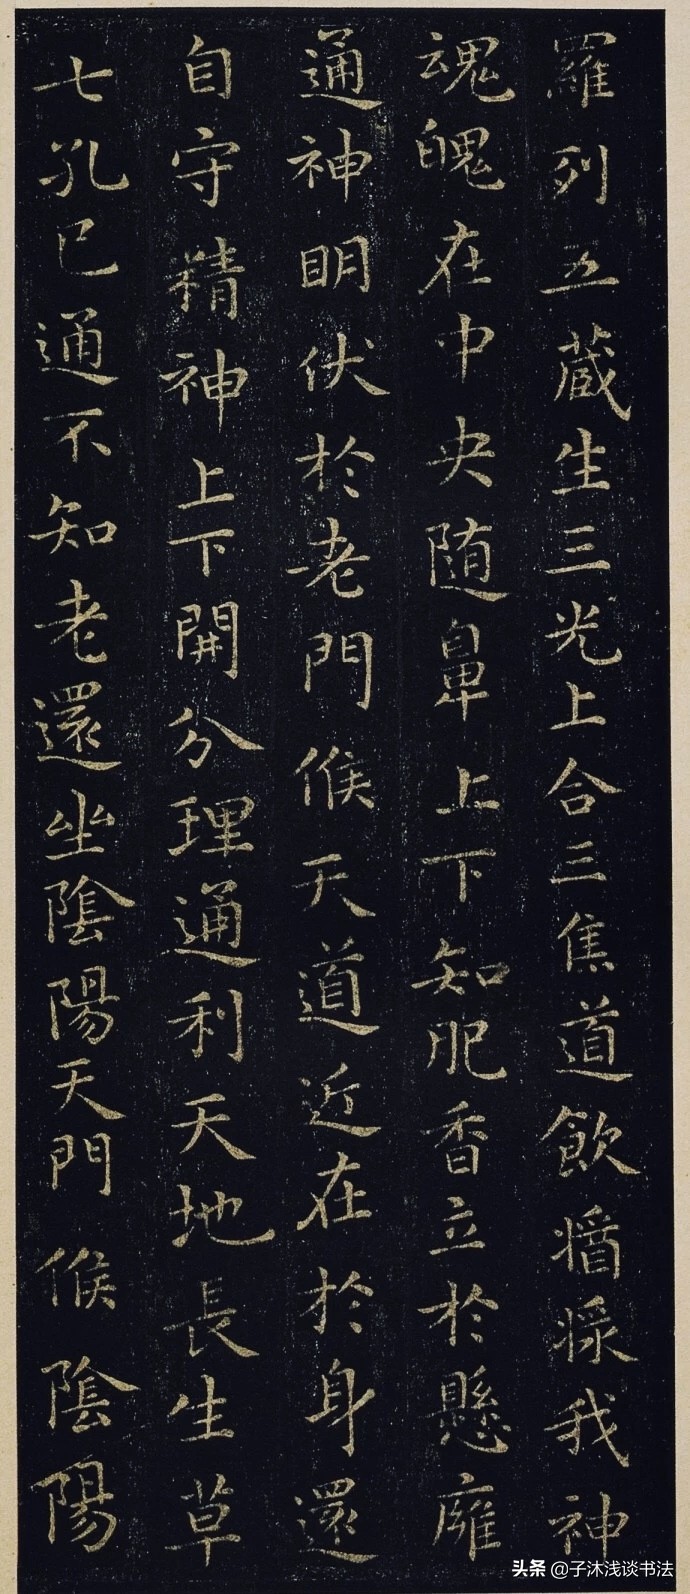 羅列五藏生三光上合三焦道飲醬漿我神
魂魄在中央随鼻上下知肥香立於懸廱
通神明伏於老門候天道近在於身還
自守精神上下開分理通利天地長生草
七孔已通不知老還坐陰陽天門候陰陽
头条 @子沐浅谈书法